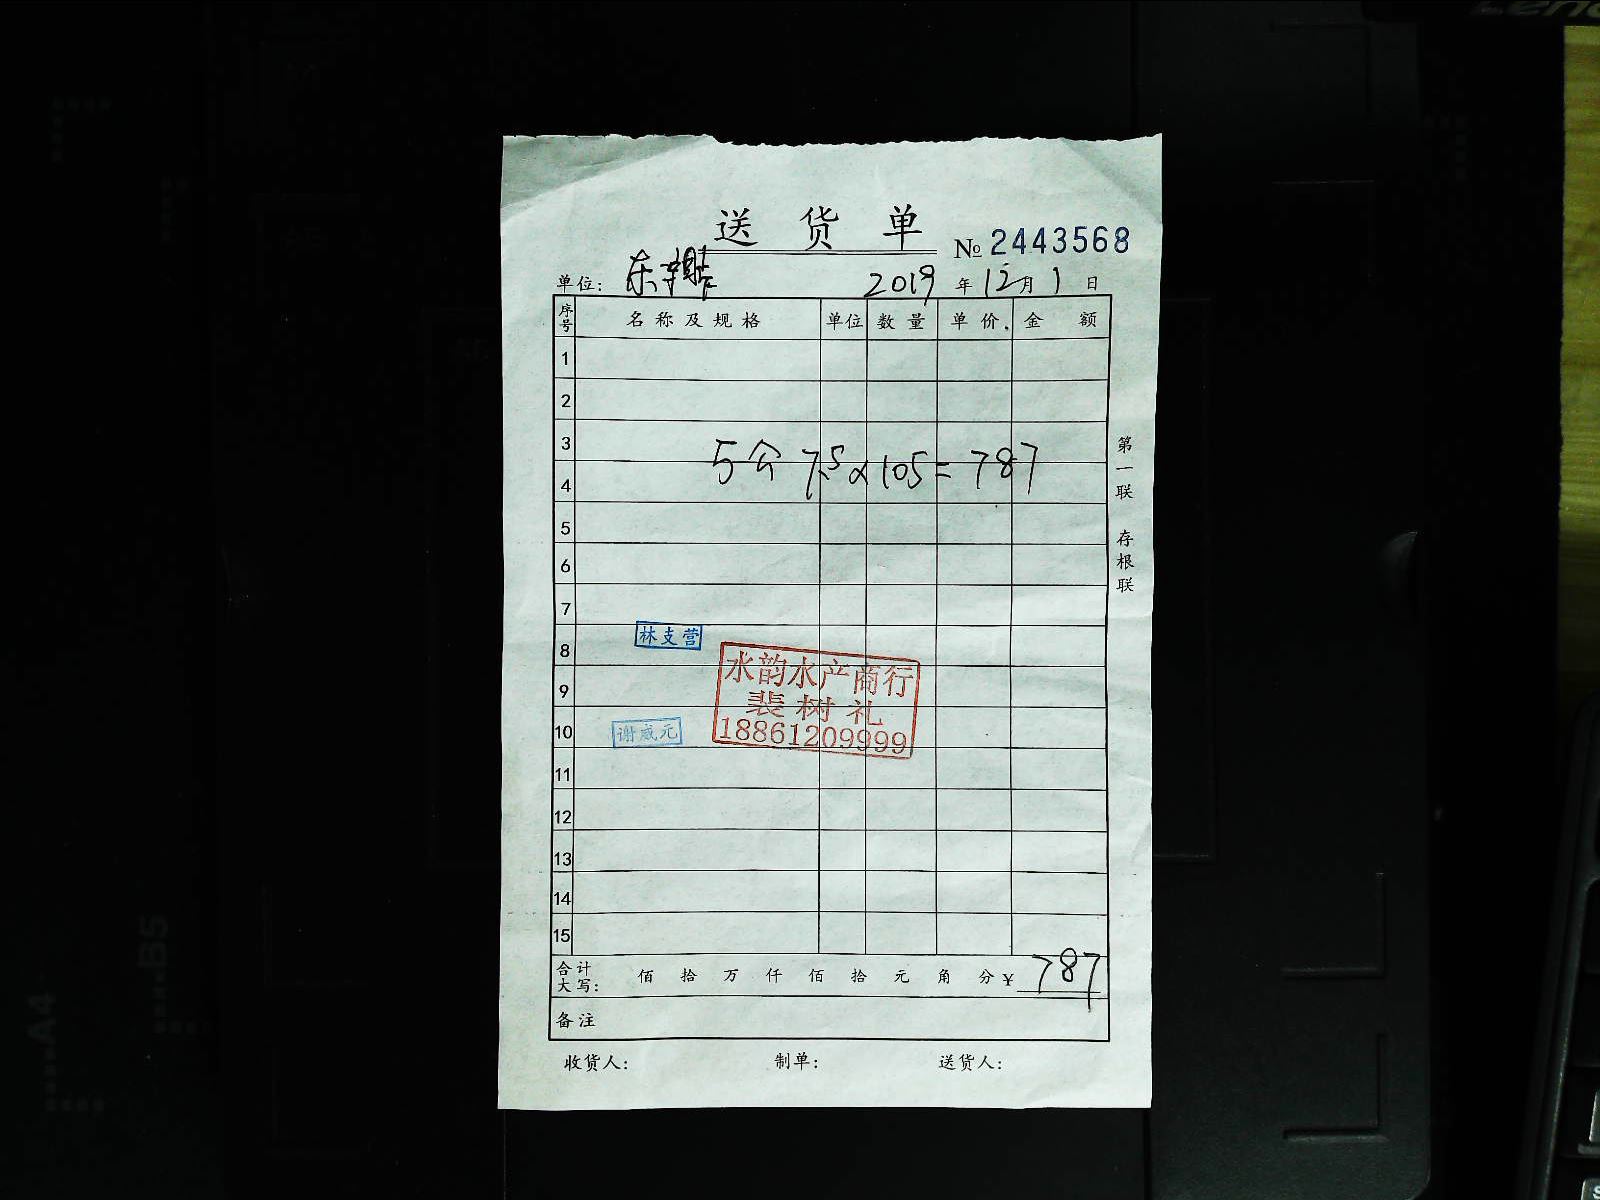 送货单
№ 2443568
单位: 东 2019年12月1日
序号 名称及规格 单位 数量 单价 金额
1
2
3
5公 7.5×105=787
4
5
6
7
林支营
8
水韵水产商行
9
裴树礼
谢威元
10
18861209999
11
12
13
14
15
合计大写: 佰 拾 万 仟 佰 拾 元 角 分 ¥ 787
备注
收货人: 制单: 送货人:
第一联 存根联
A4
B5